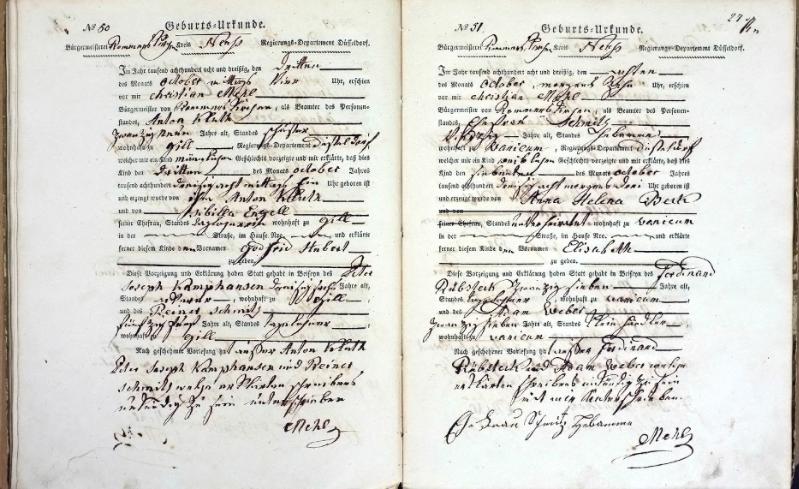 № 50
Geburts-Urkunde.
Bürgermeisterei Rommerskirchen Kreis Neuss Regierungs-Departement Düsseldorf.
Im Jahr tausend achthundert acht und dreißig, den dritten
des Monats October mittags Vier Uhr, erschien
vor mir Christian Mehl
Bürgermeister von Rommerskirchen, als Beamter des Personen-
standes, Anton
Jahre alt, Standes
wohnhaft zu Gill, Regierungs-Departement Düsseldorf
welcher mir ein Kind männlichen Geschlechts vorzeigte und mir erklärte, daß dies
Kind den dritten des Monats October Jahres
tausend achthundert dreißig acht mittags Uhr geboren ist
und erzeugt wurde von ihm Anton
und von Sibilla Engels
seiner Ehefrau, Standes wohnhaft zu Gill
in der Straße, im Hause Nro. und erklärte
ferner diesem Kinde den Vornamen Godfrid Hubert
zu geben.
Diese Vorzeigung und Erklärung haben Statt gehabt in Beiseyn des Peter
Joseph Kamphansen dreißig sechs Jahre alt,
Standes, wohnhaft zu Gill,
und des Reiner Schmitz
fünfzig fünf Jahre alt, Standes Tagelöhner,
wohnhaft zu Gill
Nach geschehener Vorlesung Anton
Peter Joseph Kamphansen und Reiner
Schmitz welche erklärten schreibens
unkundig zu sein unterschrieben
Mehl
№ 51
Geburts-Urkunde.
27
Bürgermeisterei Rommerskirchen Kreis Neuss Regierungs-Departement Düsseldorf.
Im Jahr tausend achthundert acht und dreißig, den
des Monats October morgens zehn Uhr, erschien
vor mir Christian Mehl
Bürgermeister von Rommerskirchen, als Beamter des Personen-
standes, Schmitz
vierzig Jahre alt, Standes Hebamme
wohnhaft zu Vanicum, Regierungs-Departement Düsseldorf
welcher mir ein Kind weiblichen Geschlechts vorzeigte und mir erklärte, daß dies
Kind den siebenten des Monats October Jahres
tausend achthundert dreißig acht morgens drei Uhr geboren ist
und erzeugt wurde von Anna Helena Beck
und von
seiner Ehefrau, Standes unverheirathet wohnhaft zu Vanicum
in der Straße, im Hause Nro. und erklärte
ferner diesem Kinde den Vornamen Elisabeth
zu geben.
Diese Vorzeigung und Erklärung haben Statt gehabt in Beiseyn des Ferdinand
Rübsteck zwanzig sieben Jahre alt,
Standes Tagelöhner, wohnhaft zu Vanicum,
und des Adam Weber
zwanzig sieben Jahre alt, Standes Kleinhändler,
wohnhaft zu Vanicum
Nach geschehener Vorlesung Ferdinand
Rübsteck und Adam Weber welche
erklärten schreibens unkundig zu sein
mit mir unterschrieben.
Ehefrau Schmitz Hebamme
Mehl